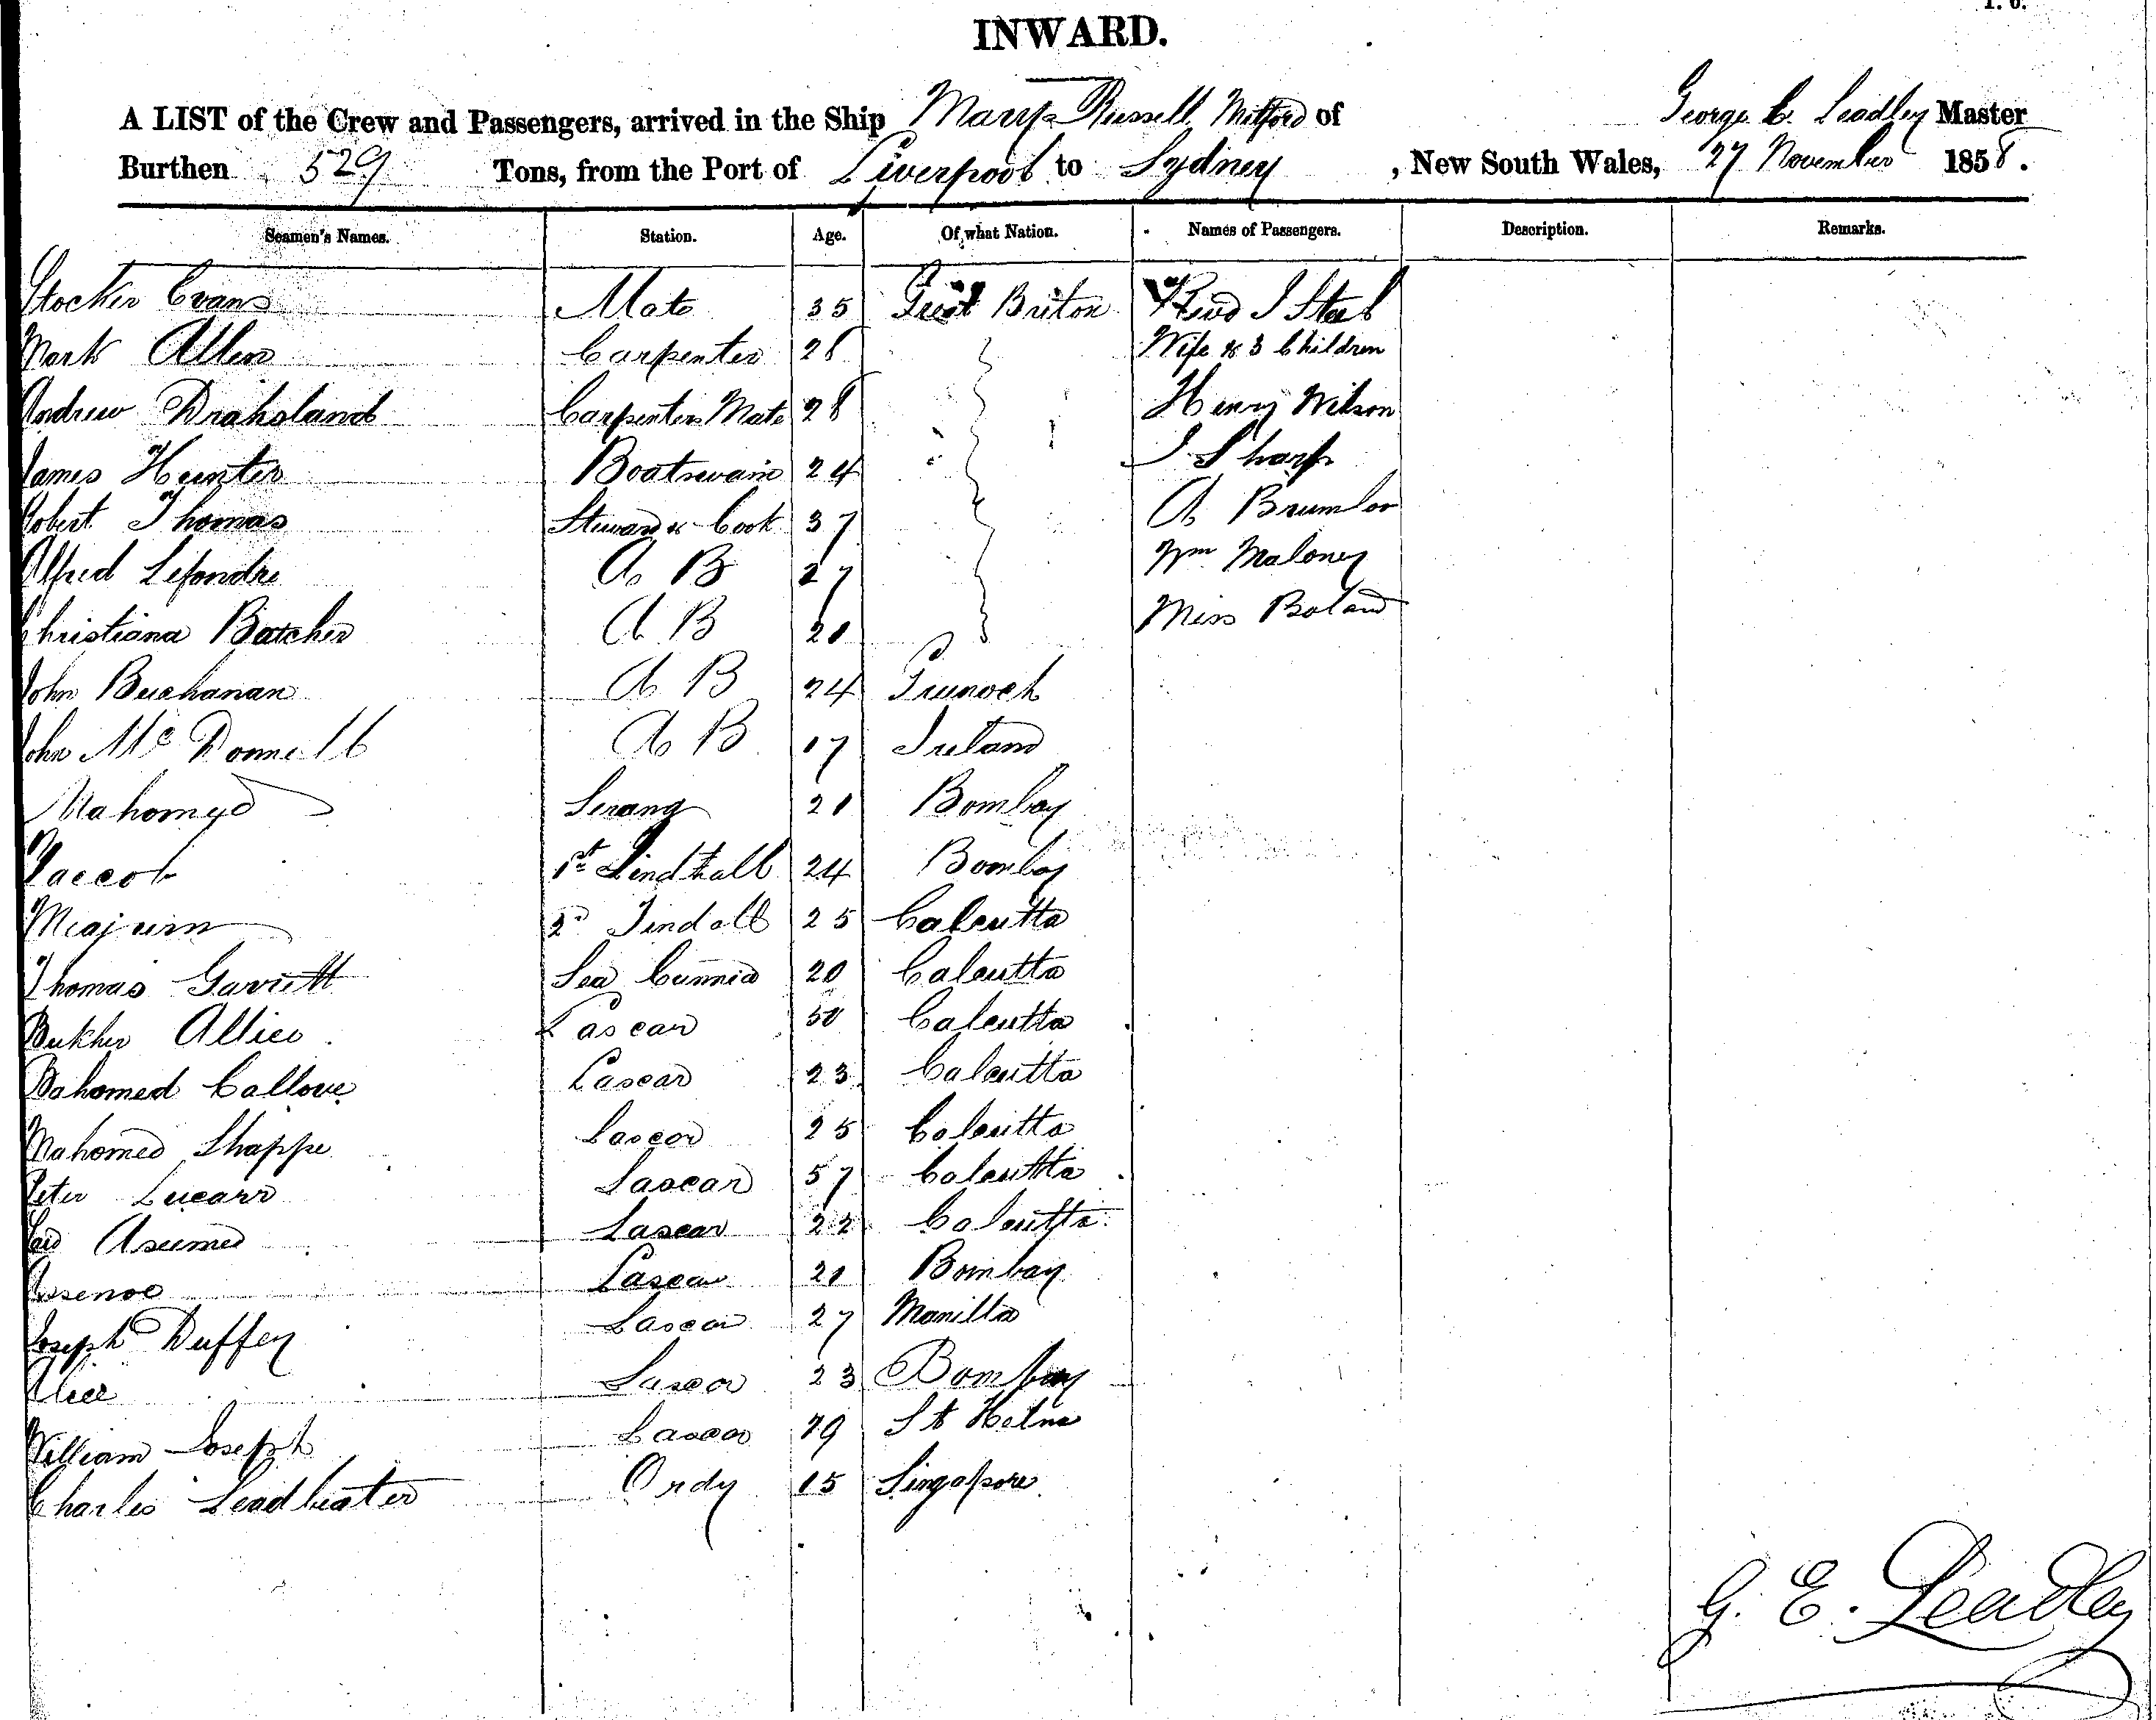 INWARD.
A LIST of the Crew and Passengers, arrived in the Ship Mary Russell Mitford of George E. Leadley Master
Burthen 529 Tons, from the Port of Liverpool to Sydney, New South Wales, 27 November 1858.
Seamen's Names. Station. Age. Of what Nation. Names of Passengers. Description. Remarks.
Stocker Evans Mate 35 Great Briton Revd J Steel
Mark Allen Carpenter 28 Wife & 3 Children
Andrew Carpenters Mate 28 Henry Wilson
James Hunter Boatswain 24 J Sharp
Robert Thomas Steward & Cook 37 A
Alfred Lefondre A B 27 Wm Maloney
Christiana Batcher A B 21 Miss Boland
John Buchanan A B 24 Greenock
John McDonnell A B 17 Ireland
Mahomyd Serang 21 Bombay
Yaccob 1st Tindhall 24 Bombay
2d Tindall 25 Calcutta
Thomas Garritt Sea Cunnie 20 Calcutta
Allice Lascar 50 Calcutta
Mahomed Callove Lascar 23 Calcutta
Mahomed Shappe Lascar 25 Calcutta
Peter Lucarr Lascar 57 Calcutta
Asumed Lascar 22 Calcutta
Lascar 21 Bombay
Joseph Duffey Lascar 27 Manilla
Lascar 23 Bombay
William Joseph Lascar 29 St Helna
Charles Leadbeater Ordy 15 Singapore
G. E. Leadley